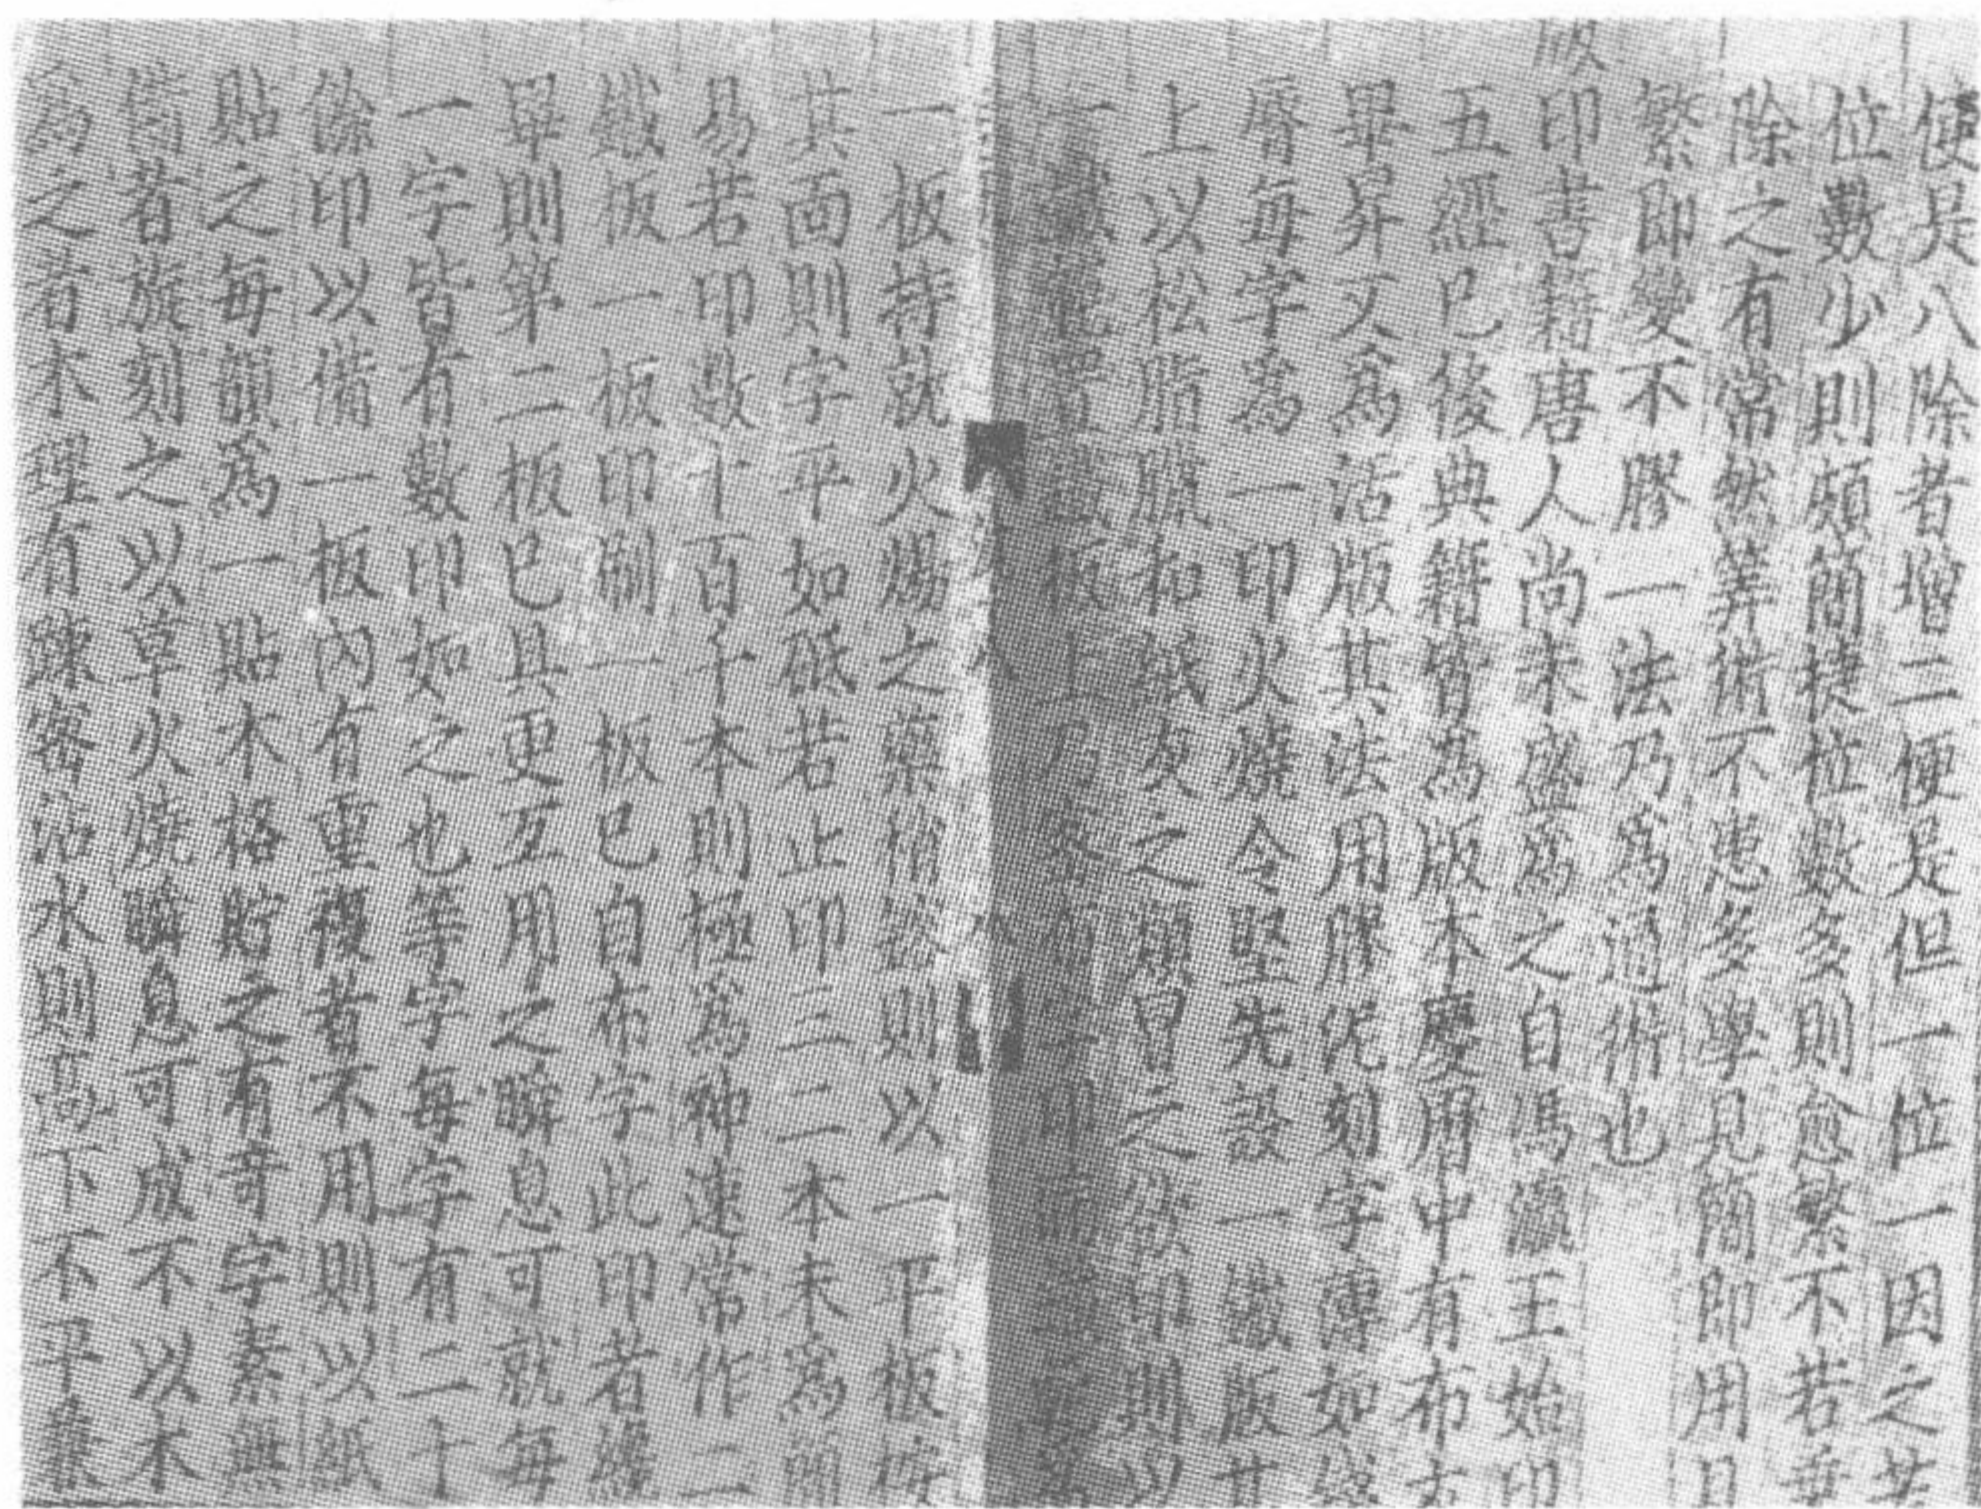 便是八除者增二便是但一位一因之若
位數少則頗簡捷位數多則愈繁不若乗
除之有常然筭術不患多學見簡即用見
繁即變不膠一法乃為通術也
版印書籍唐人尚未盛為之自馮瀛王始印
五經已後典籍皆為版本慶曆中有布衣
畢昇又為活版其法用膠泥刻字薄如錢
脣每字為一印火燒令堅先設一鐵版其
上以松脂臘和紙灰之類冒之欲印則以
一鐵範置鐵板上乃密布字印滿鐵範為
一板持就火煬之藥稍鎔則以一平板按
其面則字平如砥若止印三二本未為簡
易若印數十百千本則極為神速常作二
鐵板一板印刷一板已自布字此印者纔
畢則第二板已具更互用之瞬息可就每
一字皆有數印如之也等字每字有二十
餘印以備一板內有重複者不用則以紙
貼之每韻為一貼木格貯之有奇字素無
備者旋刻之以草火燒瞬息可成不以木
為之者木理有踈密沾水則高下不平兼